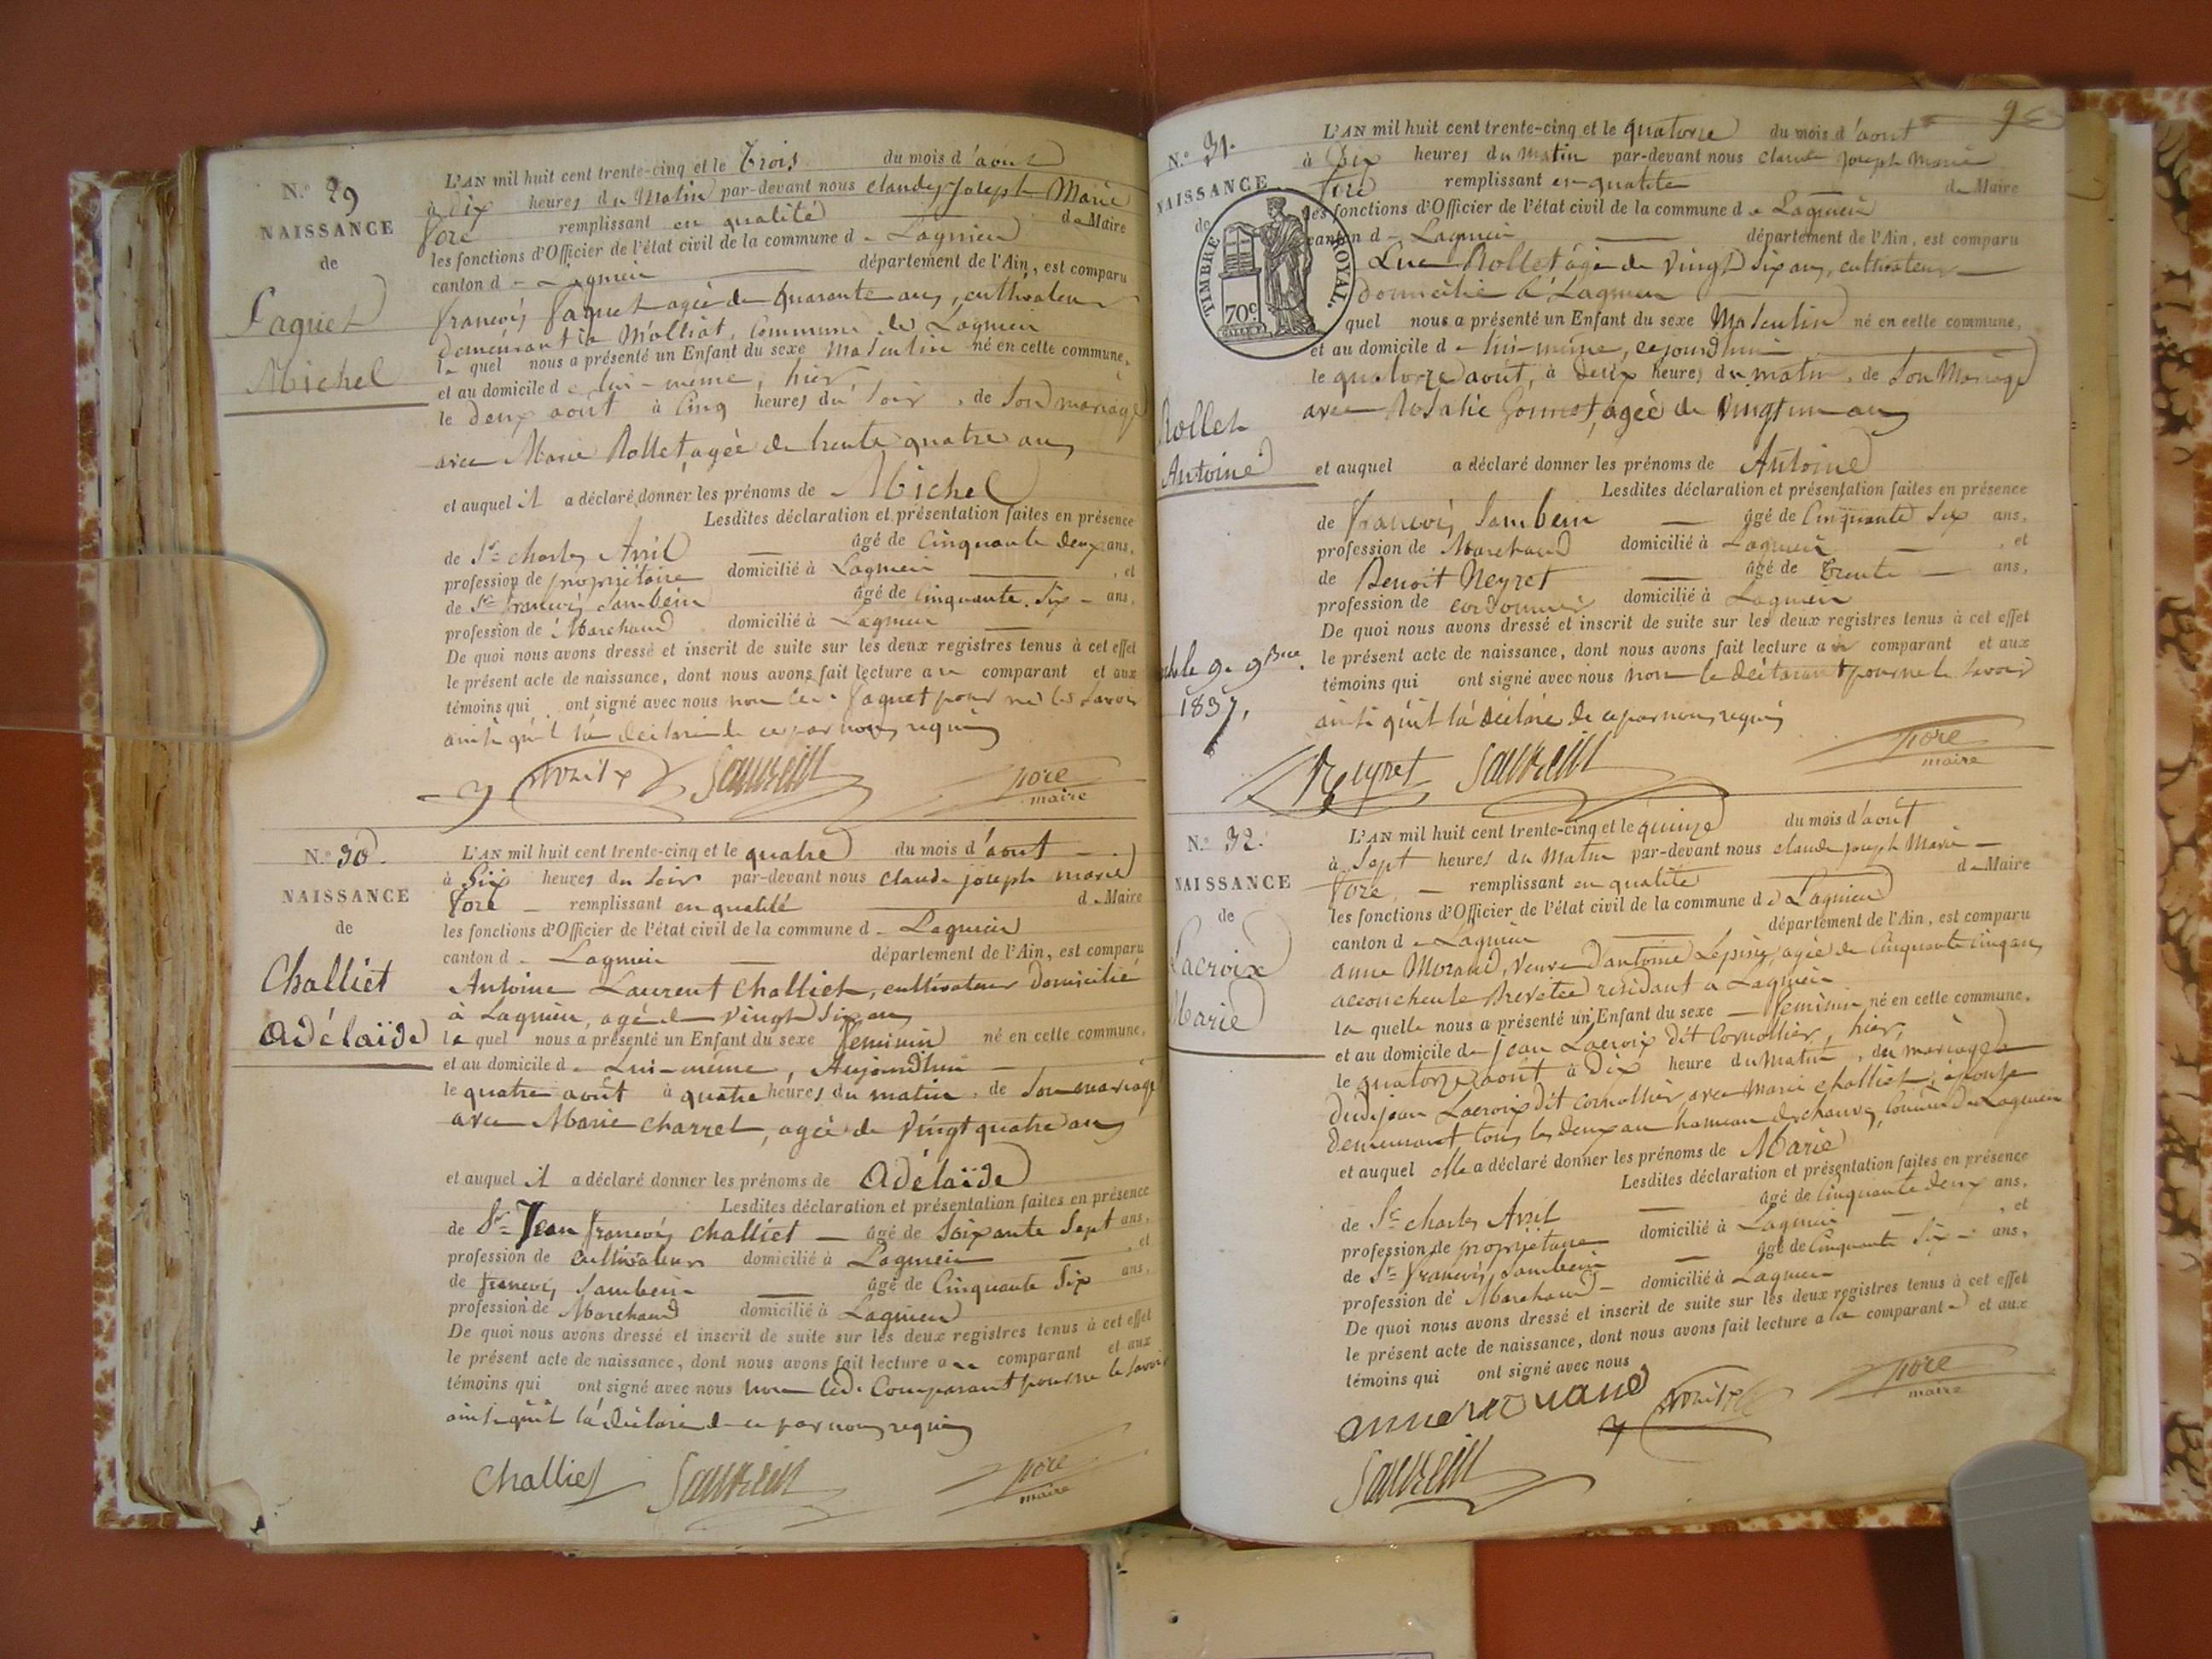 N.o 29
NAISSANCE
de
Faquet
Michel
L'AN mil huit cent trente-cinq et le Trois du mois d'aout
à dix heures du Matin par-devant nous claude Joseph Marie
fore remplissant en qualité de Maire
les fonctions d'Officier de l'état civil de la commune de Lagnieu
canton de Lagnieu département de l'Ain, est comparu
francois faquet agée de quarante ans, cultivateur
demeurant à Molliat, Commune de Lagnieu
le quel nous a présenté un Enfant du sexe Masculin né en cette commune,
et au domicile de lui-meme, hier
le deux aout à Cinq heures du soir, de Son mariage
avec Marie Rollet, agée de trente quatre ans
et auquel il a déclaré donner les prénoms de Michel
Lesdites déclaration et présentation faites en présence
de Sr charles Avril âgé de Cinquante deux ans,
profession de propriétaire domicilié à Lagnieu, et
de Sr francois Sambein âgé de Cinquante Six ans,
profession de Marchand domicilié à Lagnieu
De quoi nous avons dressé et inscrit de suite sur les deux registres tenus à cet effet
le présent acte de naissance, dont nous avons fait lecture au comparant et aux
témoins qui ont signé avec nous non led. faquet pour ne le savoir
ainsi qu'il l'a déclaré de ce par nous requis
Avril Sambein fore
maire
N.o 30.
NAISSANCE
de
Challiet
Adélaïde
L'AN mil huit cent trente-cinq et le quatre du mois d'aout
à Six heures du Soir par-devant nous claude joseph marie
fore remplissant en qualité de Maire
les fonctions d'Officier de l'état civil de la commune de Lagnieu
canton de Lagnieu département de l'Ain, est comparu
Antoine Laurent Challiet, cultivateur domicilié
à Lagnieu, agé de vingt Six ans
le quel nous a présenté un Enfant du sexe feminin né en cette commune,
et au domicile de Lui-meme, Aujourdhui
le quatre aout à quatre heures du matin, de Son mariage
avec Marie Charret, agée de vingt quatre ans
et auquel il a déclaré donner les prénoms de Adélaïde
Lesdites déclaration et présentation faites en présence
de Sr Jean francois Challiet âgé de Soixante Sept ans,
profession de cultivateur domicilié à Lagnieu, et
de francois Sambein âgé de Cinquante Six ans,
profession de Marchand domicilié à Lagnieu
De quoi nous avons dressé et inscrit de suite sur les deux registres tenus à cet effet
le présent acte de naissance, dont nous avons fait lecture au comparant et aux
témoins qui ont signé avec nous non led. Comparant pour ne le savoir
ainsi qu'il l'a déclaré de ce par nous requis
Challiet Sambein fore
maire
N.o 31.
NAISSANCE
de
TIMBRE ROYAL.
70c.
Rollet
Antoine
le 9. 9bre
1837,
L'AN mil huit cent trente-cinq et le quatorze du mois d'aout
à Dix heures du matin par-devant nous claude Joseph Marie
fore remplissant en qualité de Maire
les fonctions d'Officier de l'état civil de la commune de Lagnieu
canton de Lagnieu département de l'Ain, est comparu
Luc Rollet âgé de vingt Six ans, cultivateur
domicilié à Lagnieu
quel nous a présenté un Enfant du sexe Masculin né en cette commune,
et au domicile de lui-meme, cejourdhui
le quatorze aout, à deux heures du matin, de Son Mariage
avec Rosalie Gonnet, agée de vingt un ans
et auquel a déclaré donner les prénoms de Antoine
Lesdites déclaration et présentation faites en présence
de francois Sambein âgé de Cinquante Six ans,
profession de Marchand domicilié à Lagnieu, et
de Benoit Neyret âgé de trente ans,
profession de cordonnier domicilié à Lagnieu
De quoi nous avons dressé et inscrit de suite sur les deux registres tenus à cet effet
le présent acte de naissance, dont nous avons fait lecture au comparant et aux
témoins qui ont signé avec nous non le déclarant pour ne le savoir
ainsi qu'il l'a déclaré de ce par nous requis
Neyret Sambein fore
maire
N.o 32.
NAISSANCE
de
Lacroix
Marie
L'AN mil huit cent trente-cinq et le quinze du mois d'août
à Sept heures du Matin par-devant nous claude joseph Marie
fore remplissant en qualité de Maire
les fonctions d'Officier de l'état civil de la commune de Lagnieu
canton de Lagnieu département de l'Ain, est comparu
anne Morand, veuve d'antoine Lepine, agée de Cinquante cinq ans,
accoucheuse brevetée residant a Lagnieu
la quelle nous a présenté un Enfant du sexe feminin né en cette commune,
et au domicile de jean Lacroix dit Cornollier, hier,
le quatorze aout à dix heure du Matin, du mariage
dud. jean Lacroix dit cornollier, avec marie challiet, epouse
demeurant tous les deux au hameau de chauves, Commune de Lagnieu
et auquel elle a déclaré donner les prénoms de Marie
Lesdites déclaration et présentation faites en présence
de Sr charles Avril âgé de Cinquante deux ans,
profession de propriétaire domicilié à Lagnieu, et
de Sr francois Sambein âgé de Cinquante Six ans,
profession de Marchand domicilié à Lagnieu
De quoi nous avons dressé et inscrit de suite sur les deux registres tenus à cet effet
le présent acte de naissance, dont nous avons fait lecture a la comparante et aux
témoins qui ont signé avec nous
anne morand Avril fore
maire
Sambein